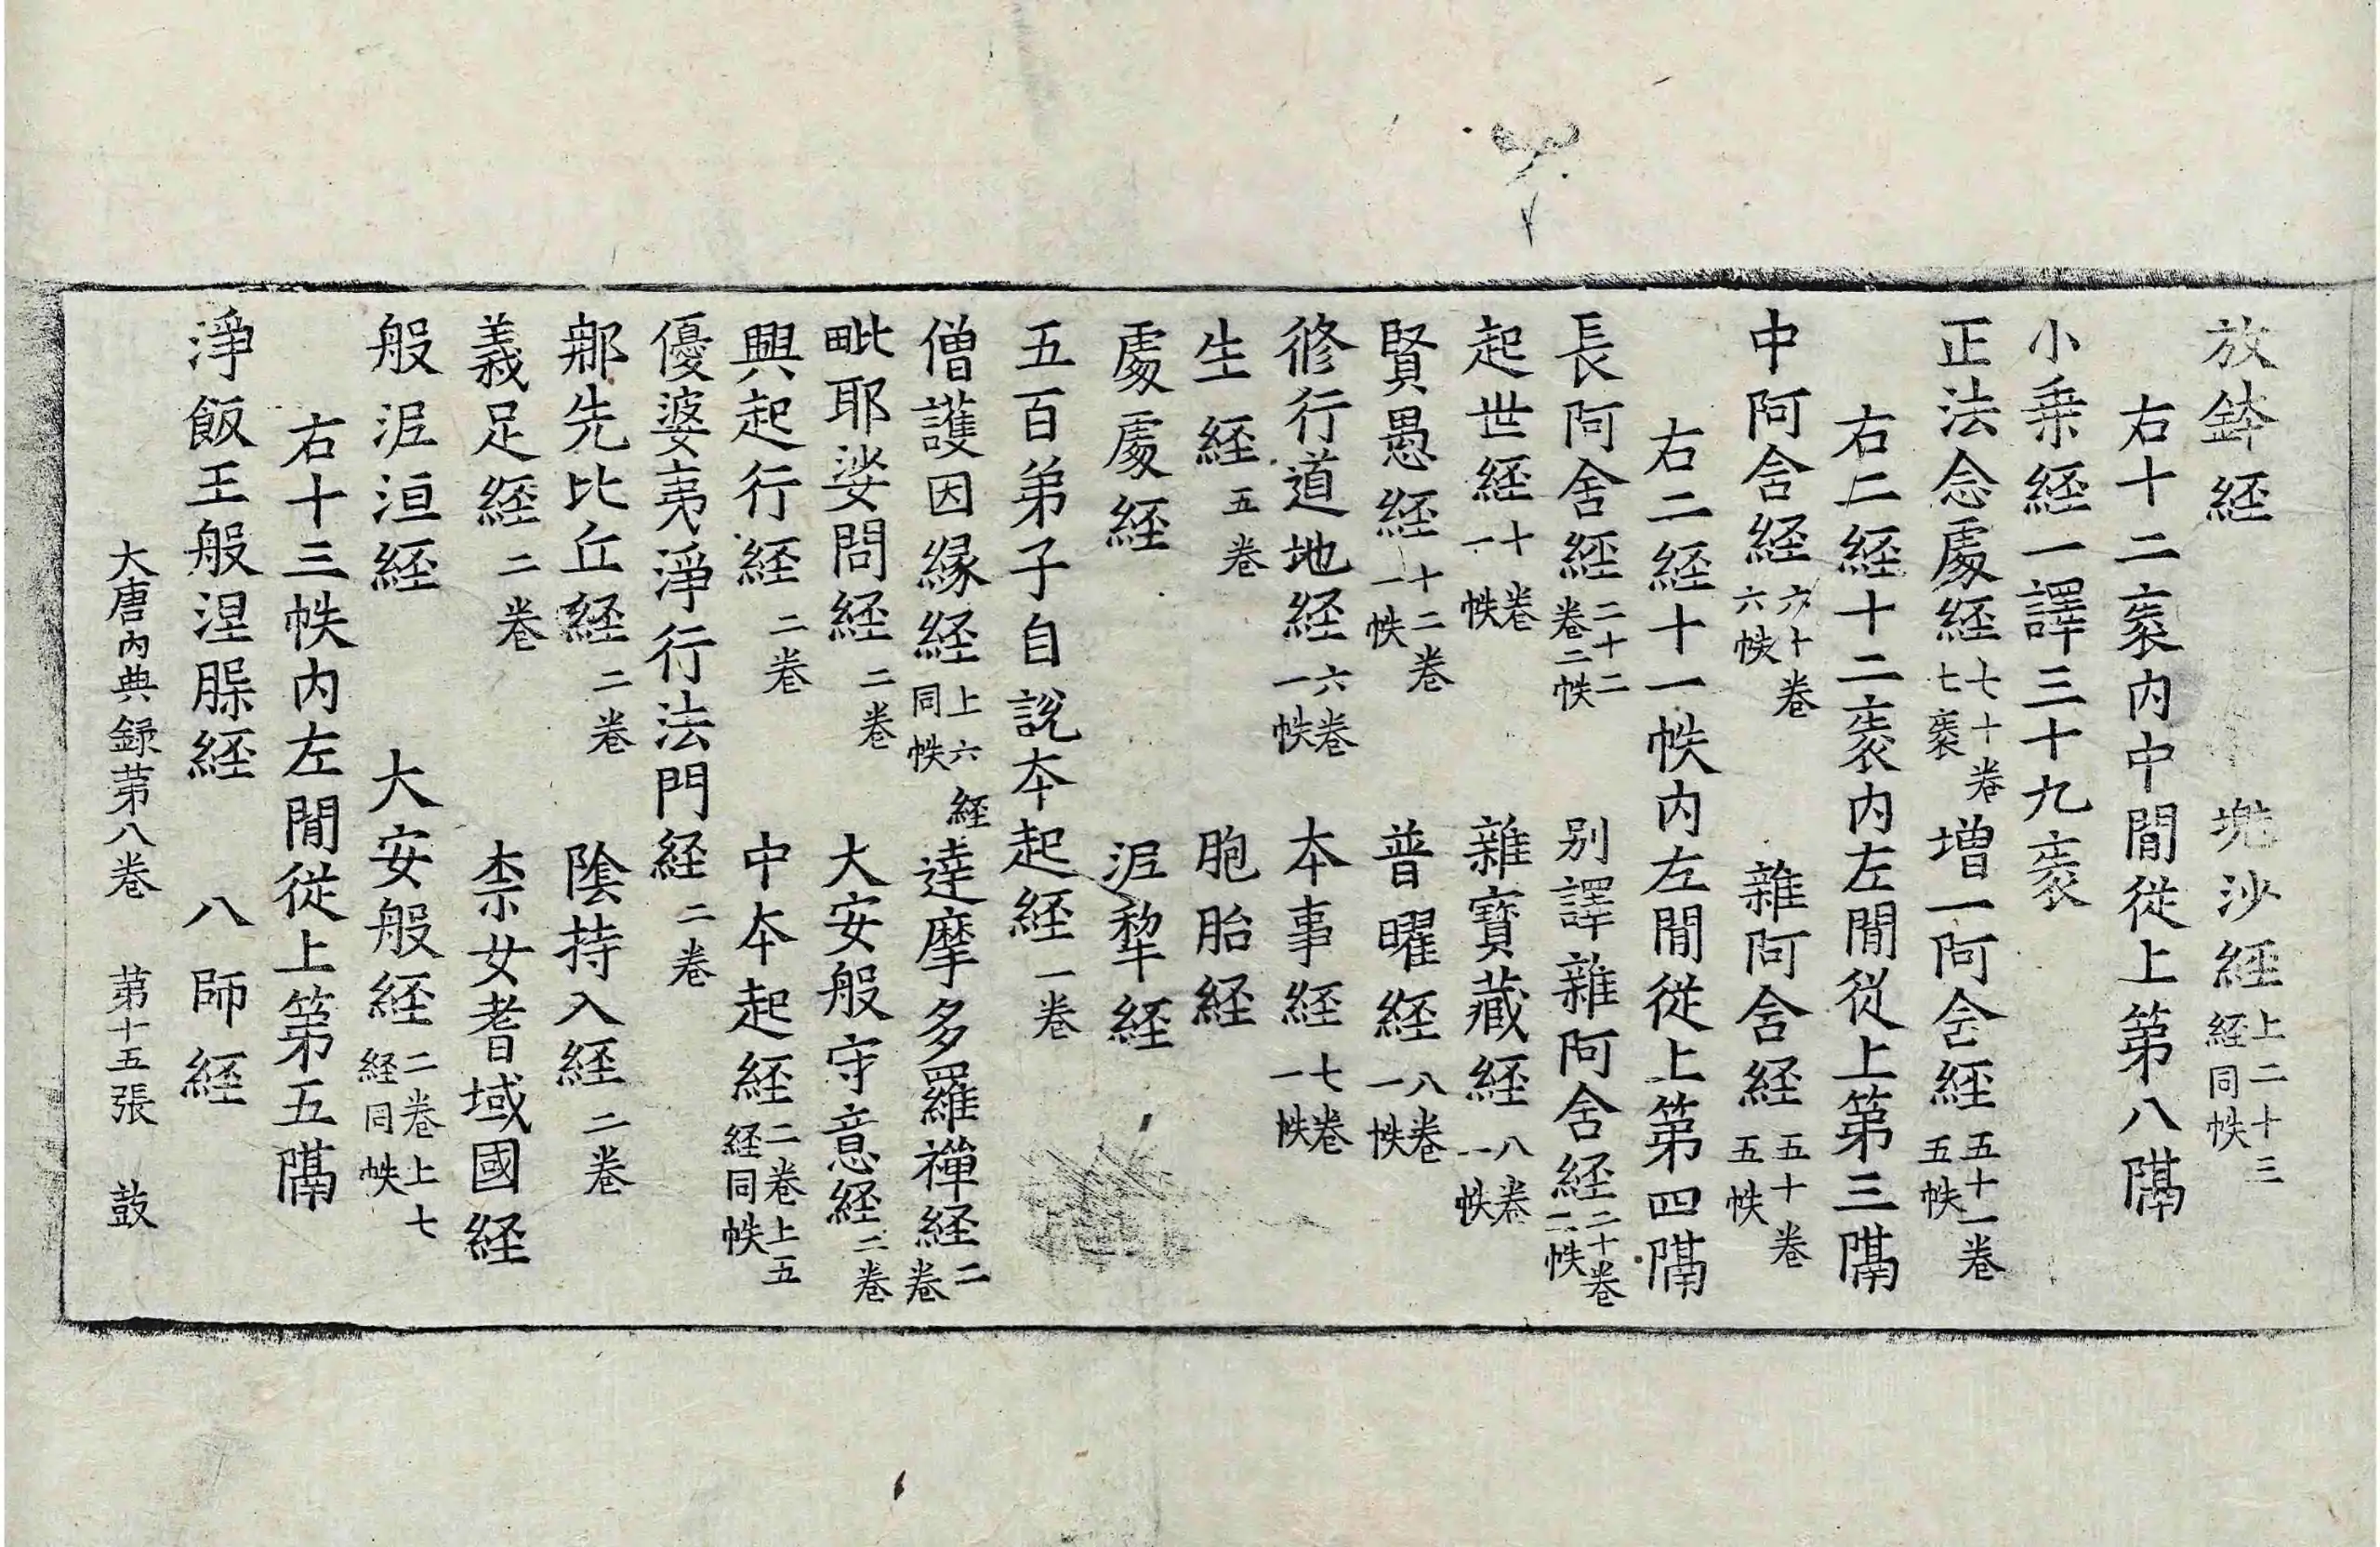 放鉢経 兠沙経上二十三経同帙
右十二袠内中閒從上第八隔
小乗経一譯三十九袠
正法念處経七十卷七袠 増一阿含経五十一卷五帙
右二経十二袠内左閒從上第三隔
中阿含経六十卷六帙 雜阿含経五十卷五帙
右二経十一帙内左閒從上第四隔
長阿含経二十二卷二帙 别譯雜阿含経二十卷二帙
起世経十卷一帙 雜寶藏経八卷一帙
賢愚経十二卷一帙 普曜経八卷一帙
修行道地経六卷一帙 本事経七卷一帙
生経五卷 胞胎経
處處経 泥犂経
五百弟子自說本起経一卷
僧護因緣経上六経同帙 達摩多羅禪経二卷
毗耶娑問経二卷 大安般守意経二卷
興起行経二卷 中本起経二卷上五経同帙
優婆夷淨行法門経二卷
那先比丘経二卷 陰持入経二卷
義足経二卷 柰女耆域國経
般泥洹経 大安般経二卷上七経同帙
右十三帙内左閒從上第五隔
淨飯王般涅槃経 八師経
大唐内典録苐八卷 苐十五張 鼓